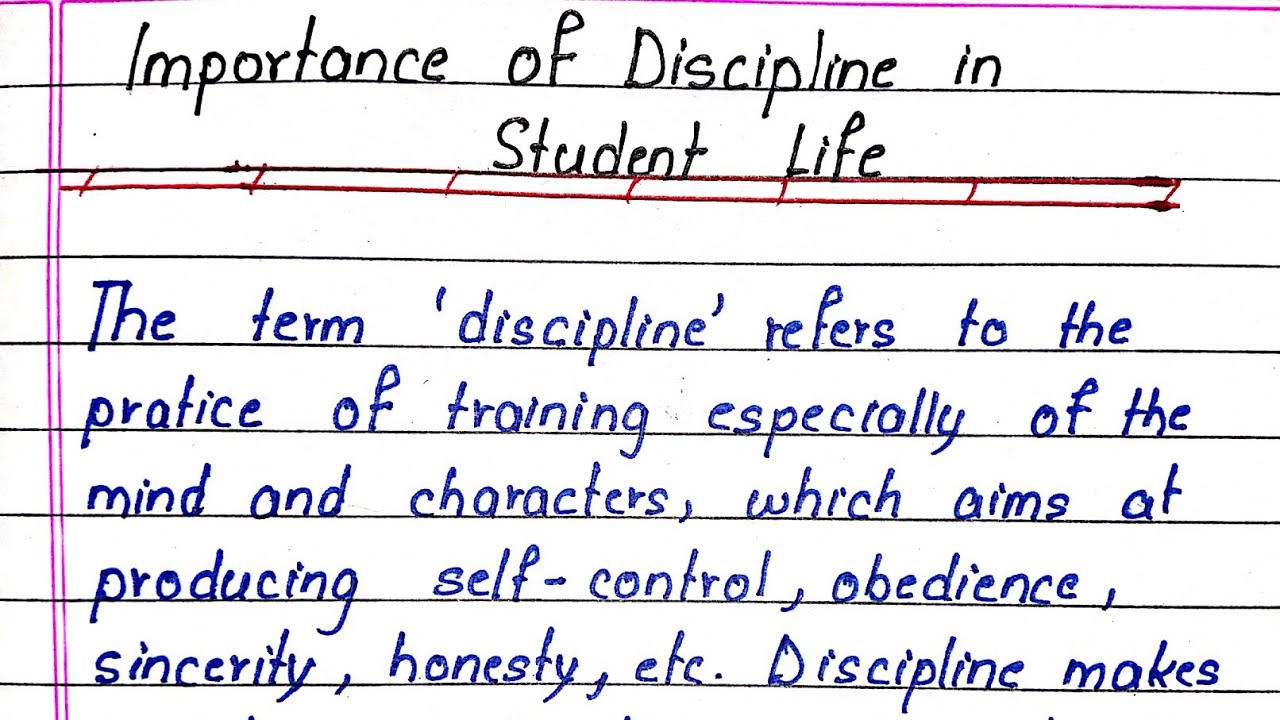 Importance of Discipline in
Student Life
The term 'discipline' refers to the
pratice of training especially of the
mind and characters, which aims at
producing self-control, obedience,
sincerity, honesty, etc. Discipline makes